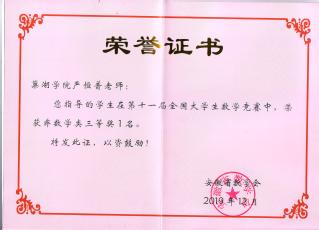 荣誉证书
巢湖学院严恒普老师：
您指导的学生在第十一届全国大学生数学竞赛中，荣
获非数学类三等奖1名。
特发此证，以资鼓励！
安徽省数学会
2019年12.1